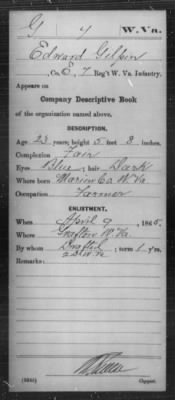 G 7 W. Va.
Edward Gilpin
Co. E, 7 Reg't W. Va. Infantry.
Appears on
Company Descriptive Book
of the organization named above.
DESCRIPTION.
Age 23 years; height 5 feet 8 inches.
Complexion Fair
Eyes Blue; hair Dark
Where born Marion Co. W. Va.
Occupation Farmer
ENLISTMENT.
When April 9, 1865.
Where Grafton W. Va.
By whom Drafted; term 1 y'rs.
Remarks: 2d W Va
Copyist.